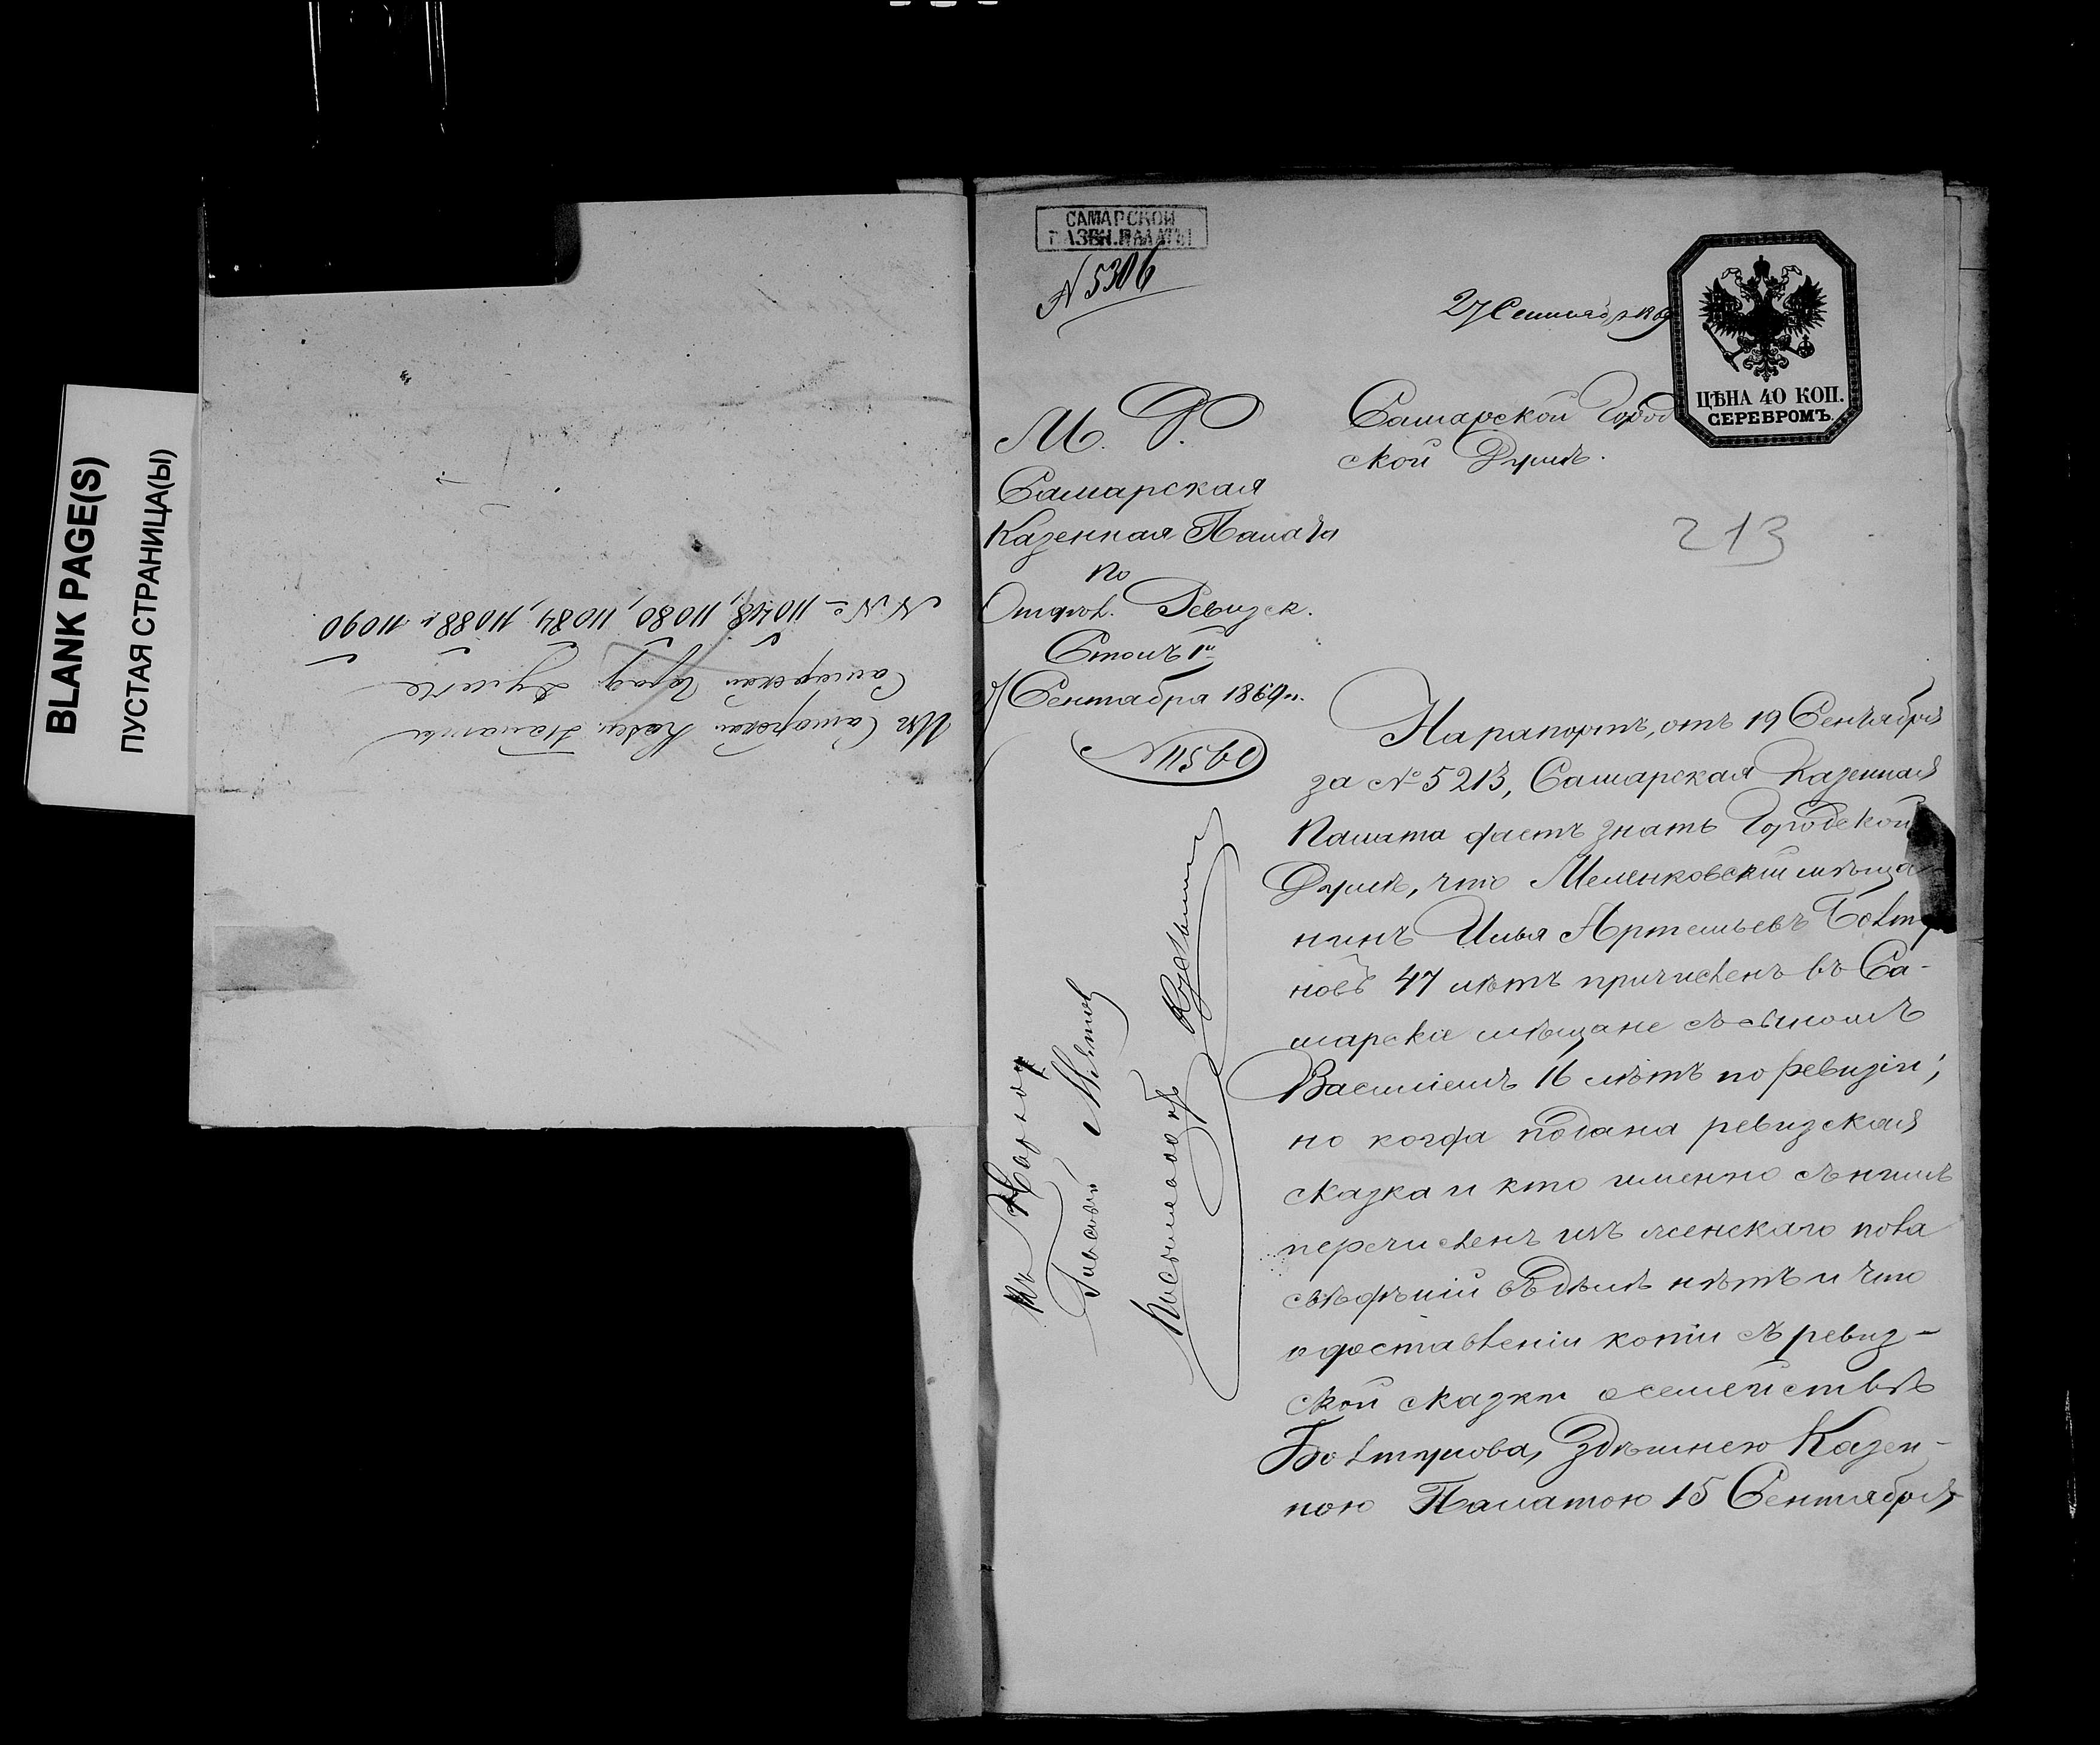 BLANK PAGE(S)
ПУСТАЯ СТРАНИЦА(Ы)
Изъ Самарской Казен. Палаты
Самарской Град. Думѣ
№№ 11048, 11080, 11084, 11088 и 11090
САМАРСКОЙ
КАЗЕН. ПАЛАТЫ
№ 5306
27 Сентября 1869
ЦѢНА 40 КОП.
СЕРЕБРОМЪ.
М. Ф.
Самарская
Казенная Палата
по
Отдѣл. Ревизск.
Столъ 1й
Сентября 1869 г.
№ 11560
Самарской Город
ской Думѣ.
213
На рапортъ, отъ 19 Сентября
за № 5213, Самарская Казенная
Палата даетъ знать Городской
Думѣ, что Меленковскій мѣща
нинъ Илья Артемьевъ Болту
новъ 47 лѣтъ причисленъ въ Са-
марскіе мѣщане съ сыномъ
Василіемъ 16 лѣтъ по ревизіи;
но когда подана ревизская
сказка и кто именно съ нимъ
перечисленъ изъ женскаго пола
свѣдѣній въ дѣлѣ нѣтъ и что
о доставленіи копіи съ ревиз-
ской сказки о семействѣ
Болтунова, Здѣшнею Казен-
ною Палатою 15 Сентября